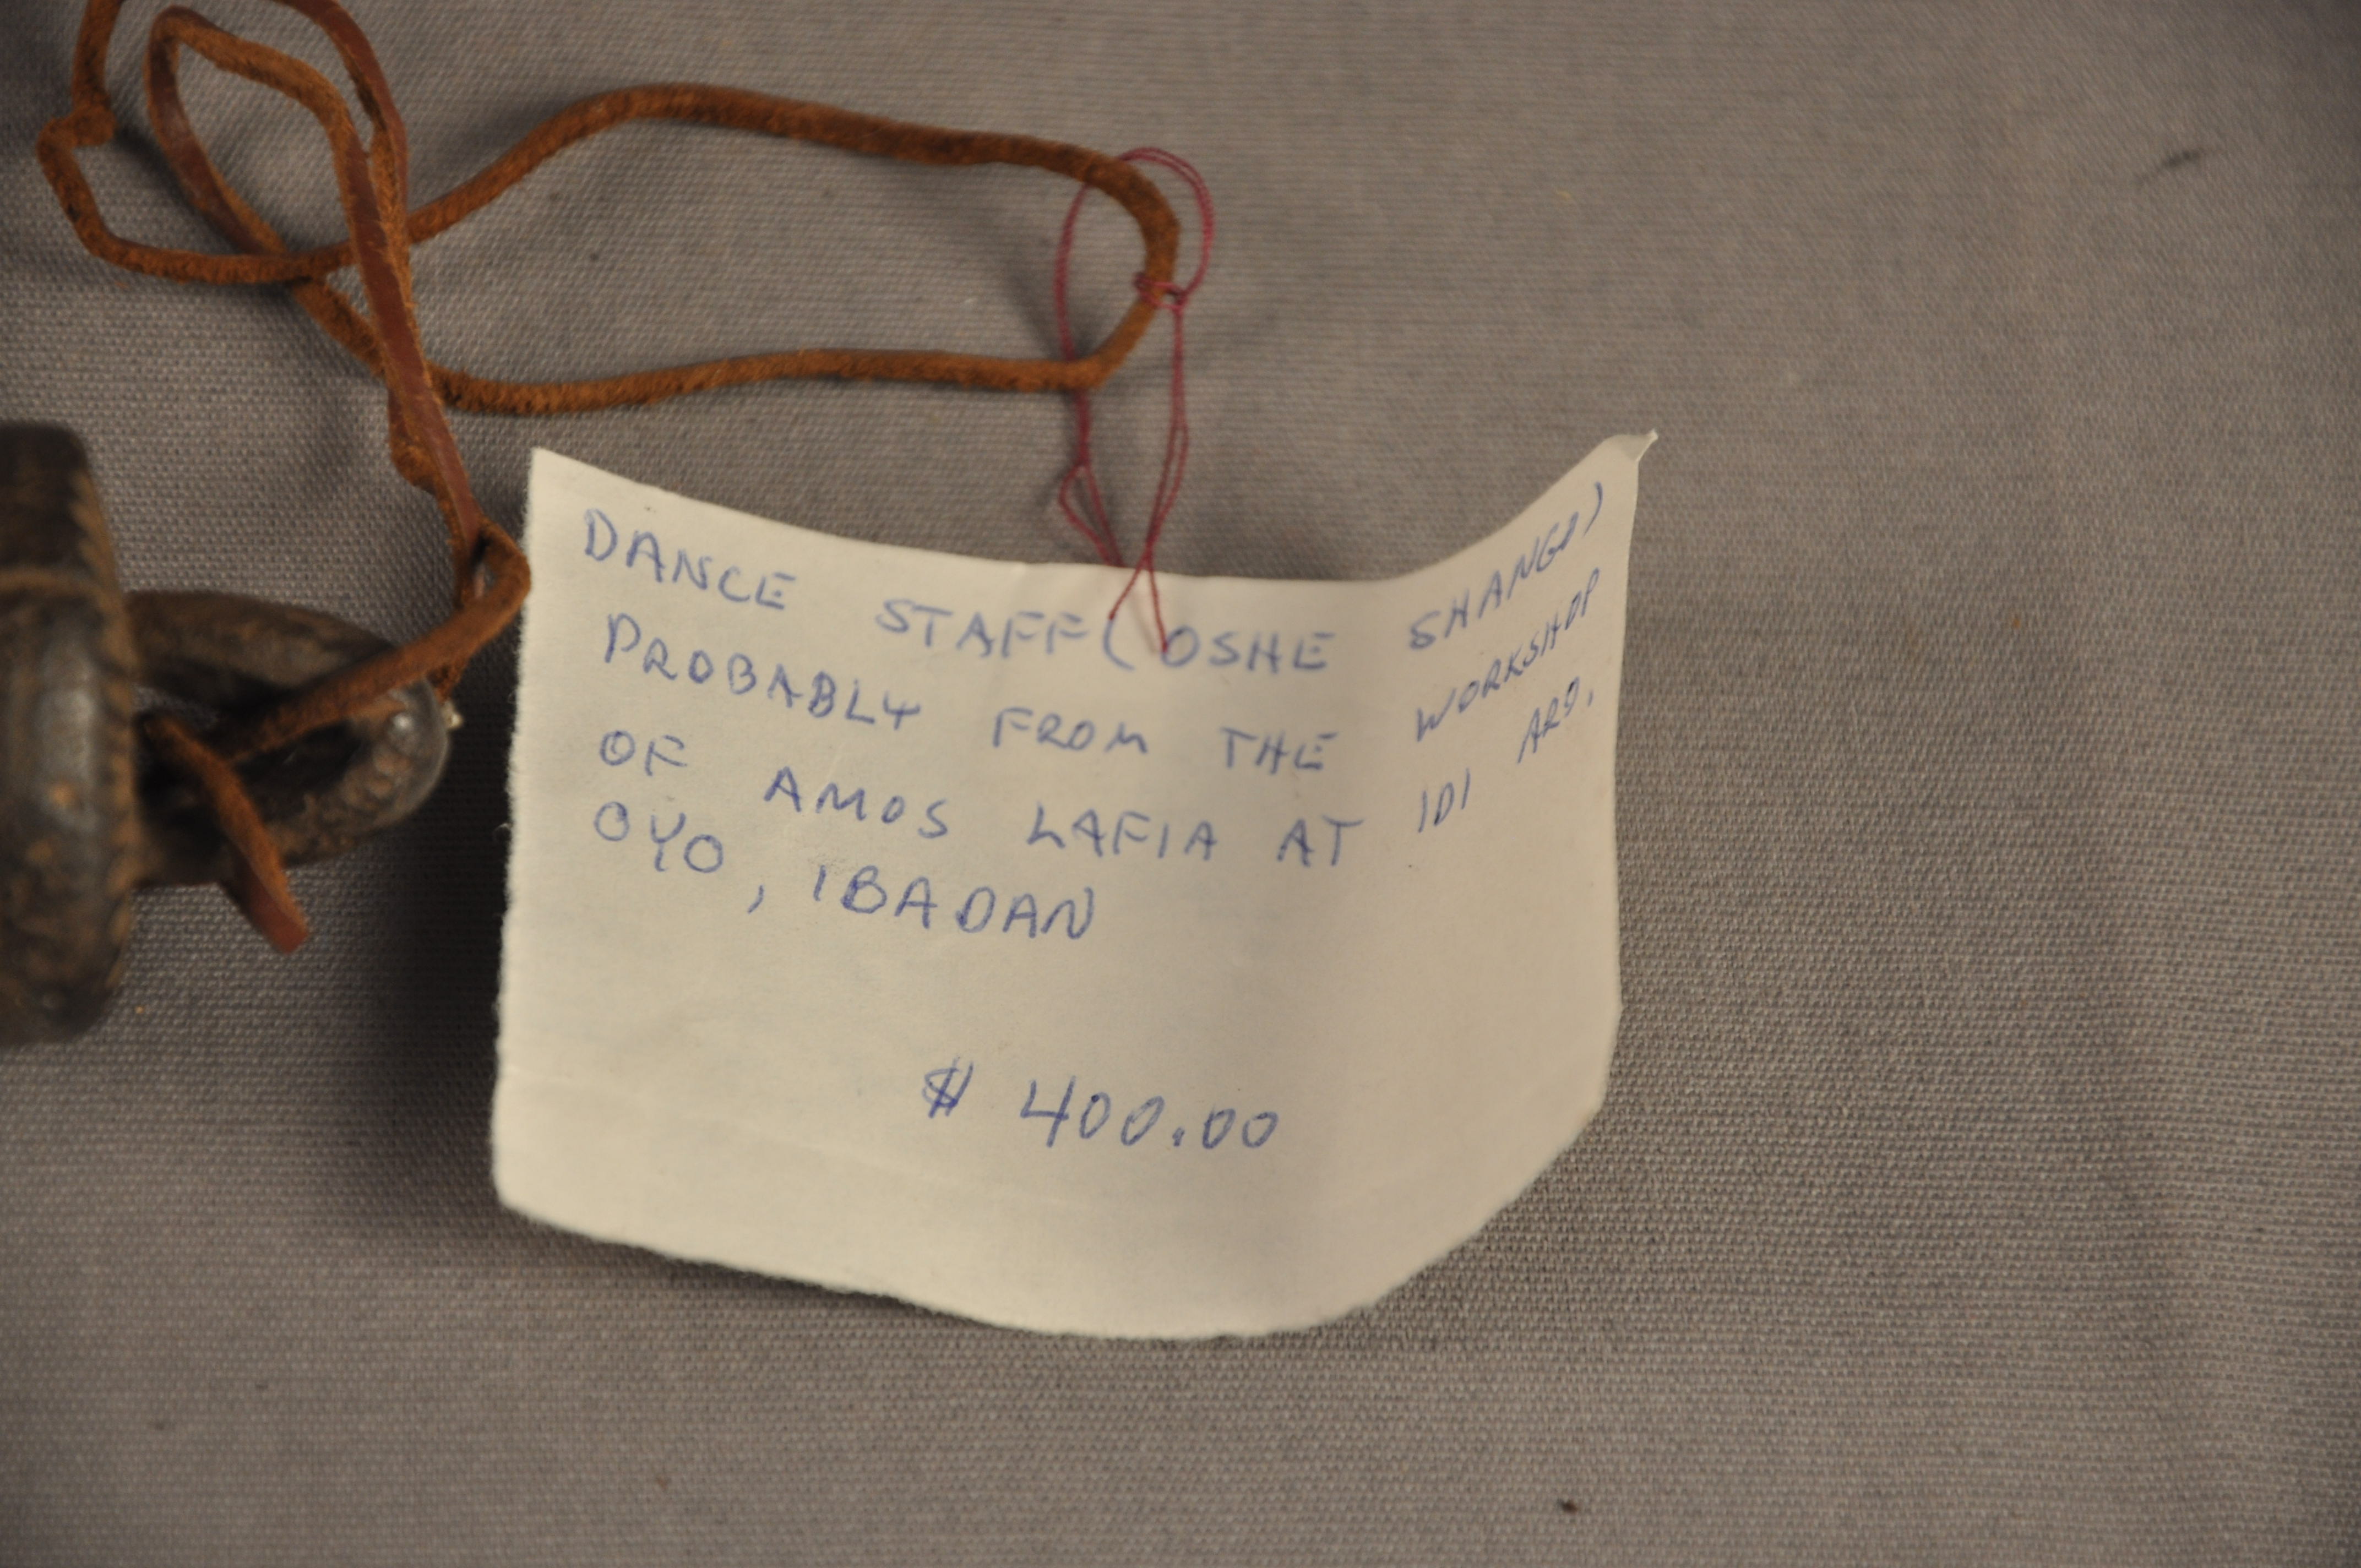 DANCE STAFF (OSHE SHANGO)
PROBABLY FROM THE WORKSHOP
OF AMOS LAFIA AT IDI ARO,
OYO, IBADAN
$ 400.00